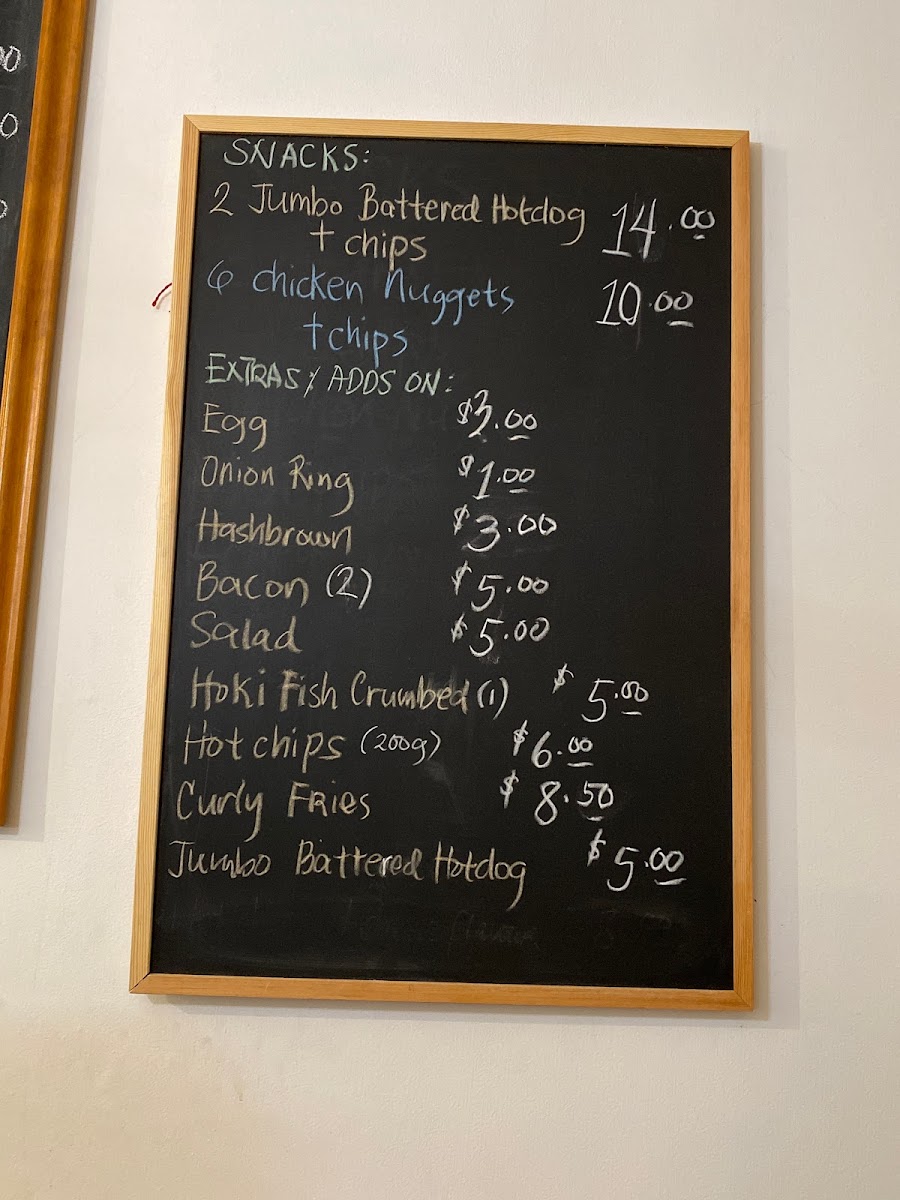 SNACKS:
2 Jumbo Battered Hotdog 14.00
+ chips
6 chicken Nuggets 10.00
+ chips
EXTRAS / ADDS ON:
Egg $3.00
Onion Ring $1.00
Hashbrown $3.00
Bacon (2) $5.00
Salad $5.00
Hoki Fish Crumbed (1) $5.00
Hot chips (200g) $6.00
Curly Fries $8.50
Jumbo Battered Hotdog $5.00